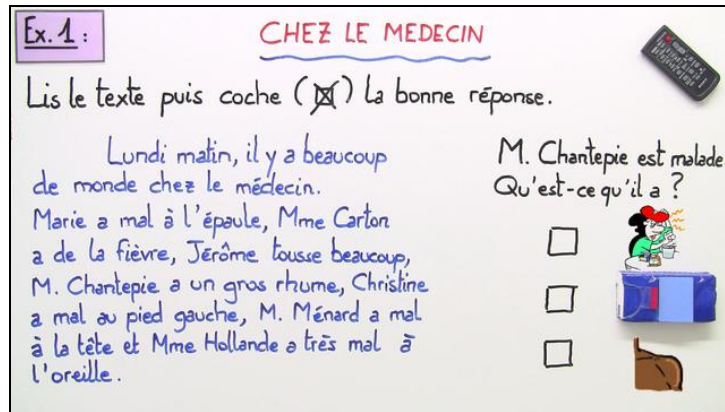 Ex. 1 :
CHEZ LE MEDECIN
Lis le texte puis coche (☒) la bonne réponse.
Lundi matin, il y a beaucoup
de monde chez le médecin.
Marie a mal à l'épaule, Mme Carton
a de la fièvre, Jérôme tousse beaucoup,
M. Chantepie a un gros rhume, Christine
a mal au pied gauche, M. Ménard a mal
à la tête et Mme Hollande a très mal à
l'oreille.
M. Chantepie est malade
Qu'est-ce qu'il a ?